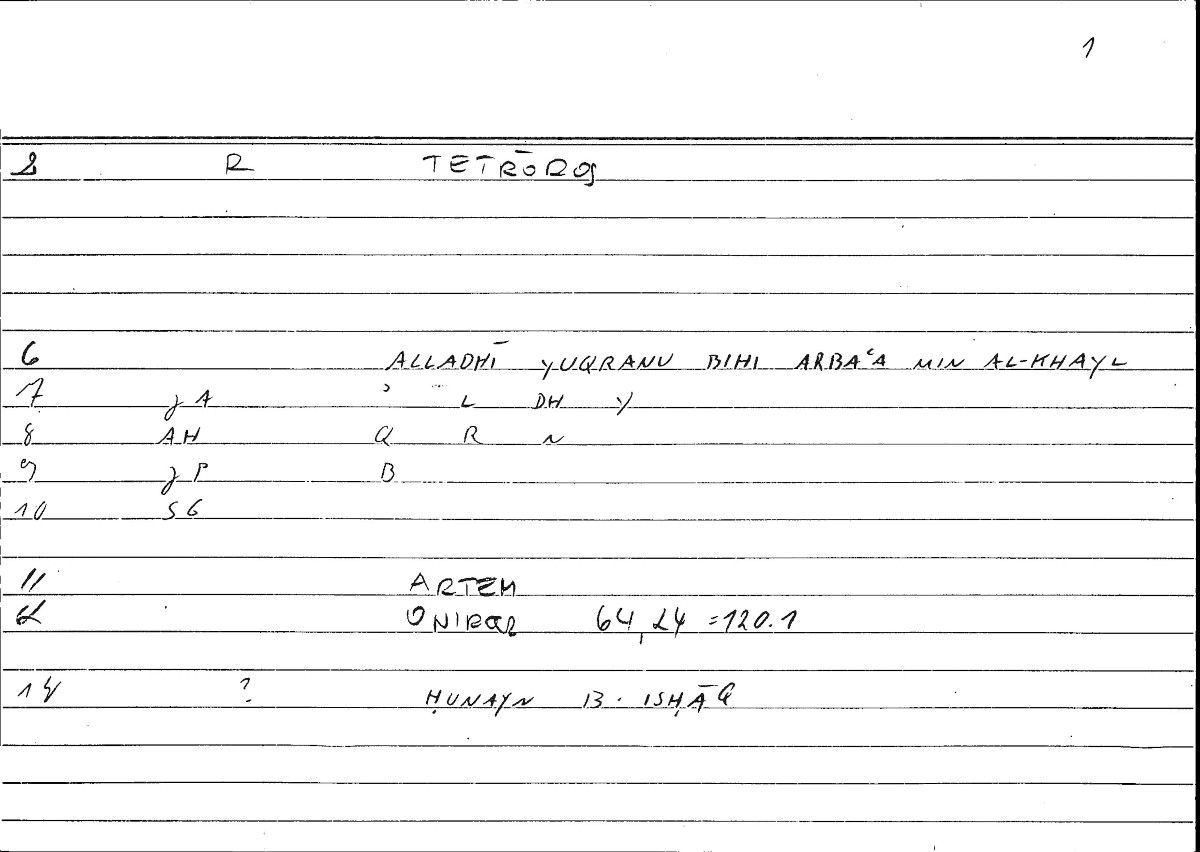 1
2 R TETRŌROS
6 ALLADHĪ YUQRANU BIHI ARBAʿA MIN AL-KHAYL
7 JA ʾ L DH Y
8 AH Q R N
9 JP B
10 SG
11 ARTEM
12 ONIROCR 64,24 =120.1
14 ? ḤUNAYN B. ISḤĀQ